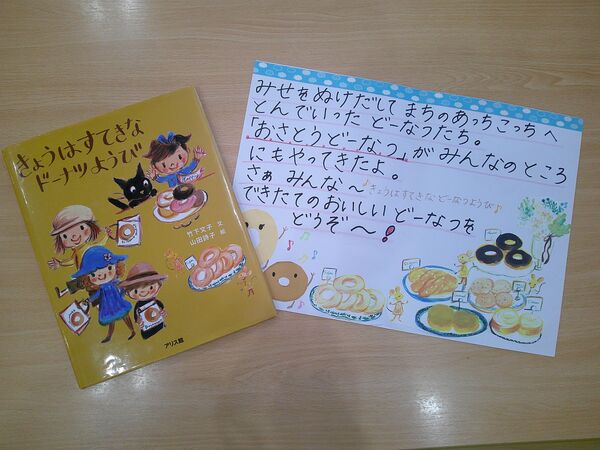 きょうはすてきな
ドーナツようび
竹下文子 文
山田詩子 絵
アリス館
みせをぬけだして まちのあっちこっちへ
とんでいった どーなつたち。
「おさとうどーなつ」が みんなのところ
にもやってきたよ。
さぁ みんな〜
♪きょうはすてきなどーなつようび♪
できたてのおいしい どーなつを
どうぞ〜!